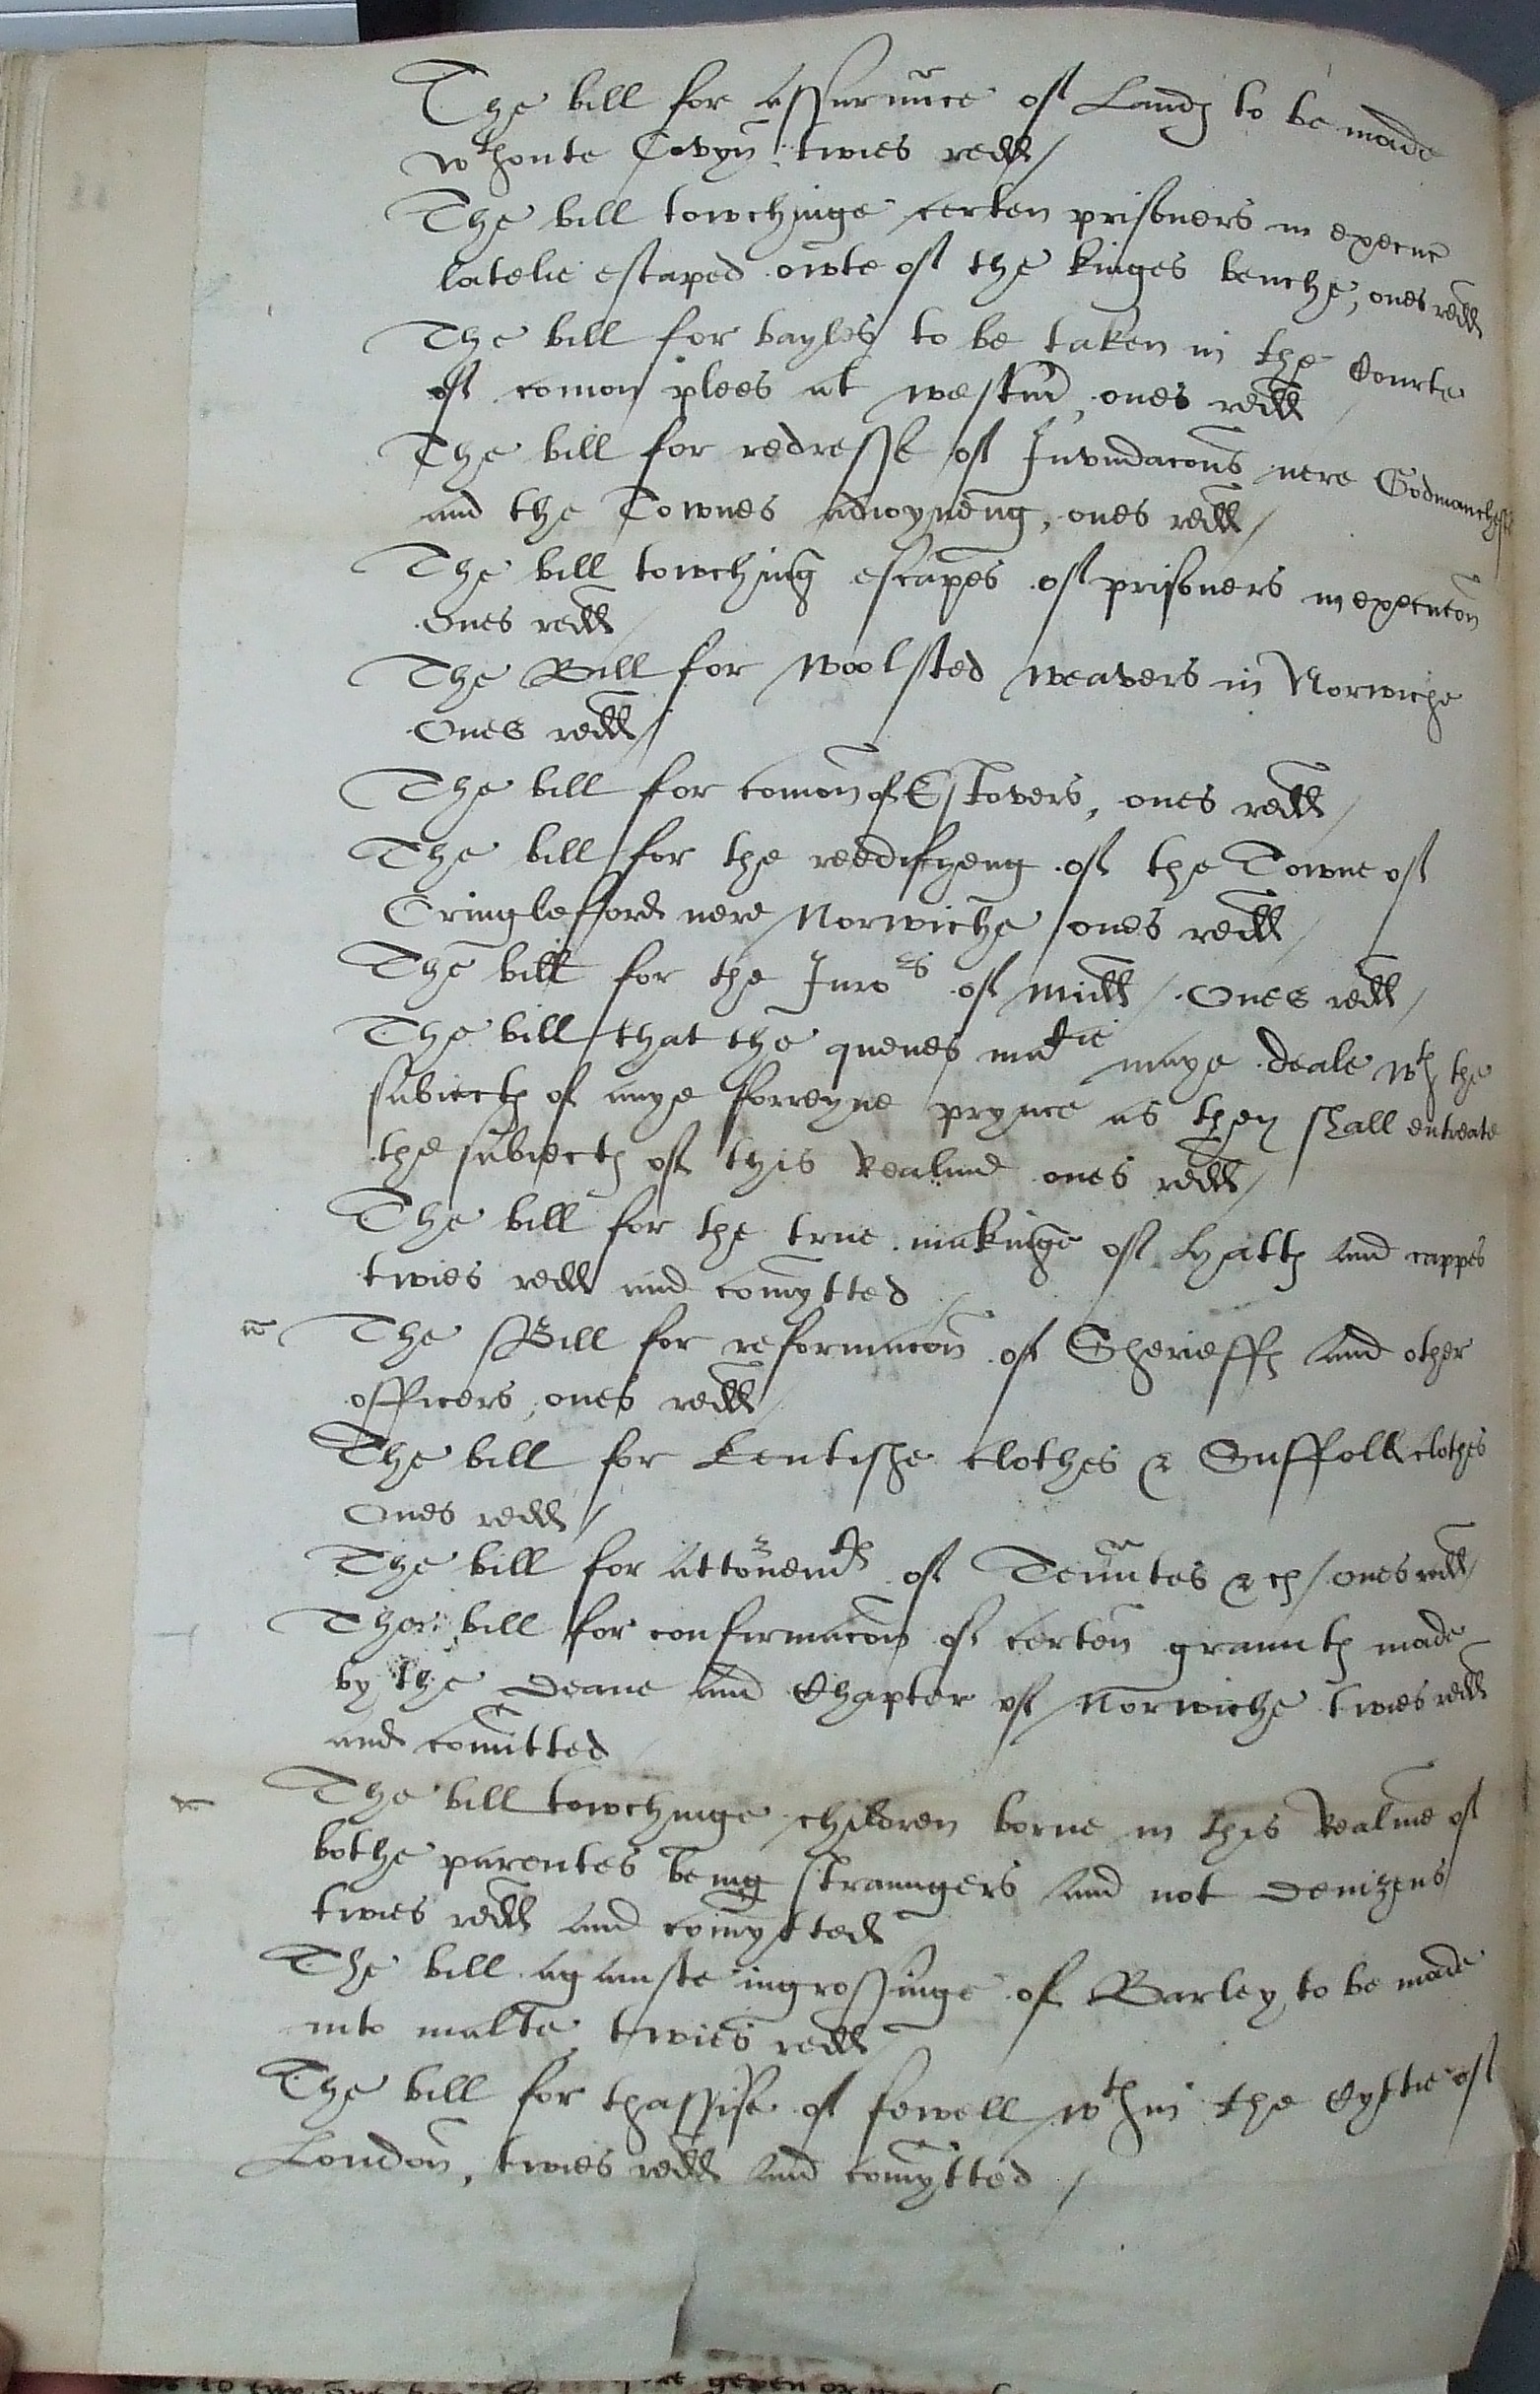 The bill for assurance of Landes to be made
wthoute Covyn twies redd /
The bill towchinge certen prisoners in execuc
latelie escaped owte of the kinges benche, ones redd
The bill for bayles to be taken in the Courte
of comon plees at westm, ones redd
The bill for redresse of Invndacons nere Godmanchest
and the Townes adioyneng, ones redd /
The bill towching escapes of prisoners in execucon
Ones redd /
The Bill for woolsted weavers in Norwiche
Ones redd /
The bill for comon of Estovers, ones redd /
The bill for the reedifyeng of the Towne of
Cringlefford nere Norwiche ones redd /
The bill for the Juro es of Midd / Ones redd /
The bill that the quenes matie maye deale wth the
subiectes of anye forreyne prynce as they shall entreate
the subiectes of this Realme ones redd /
The bill for the true makinge of hattes and cappes
twies redd and comytted
The Bill for reformacon of Sherieffes and other
officers, ones redd /
The bill for Kentishe clothes & Suffolk clothes
Ones redd /
The bill for Attornemtes of Tenantes &c / ones redd /
The bill for confirmacon of certen grauntes made
by the Deane and Chapter of Norwiche twies redd
and comitted /
The bill towchinge children borne in this Realme of
bothe parentes being straungers and not Denizens
twies redd and comytted
The bill againste ingrossinge of Barley to be made
into malte, twies redd
The bill for thassise of fewell wthin the Cyttie of
London, twies redd and comytted /
geven or